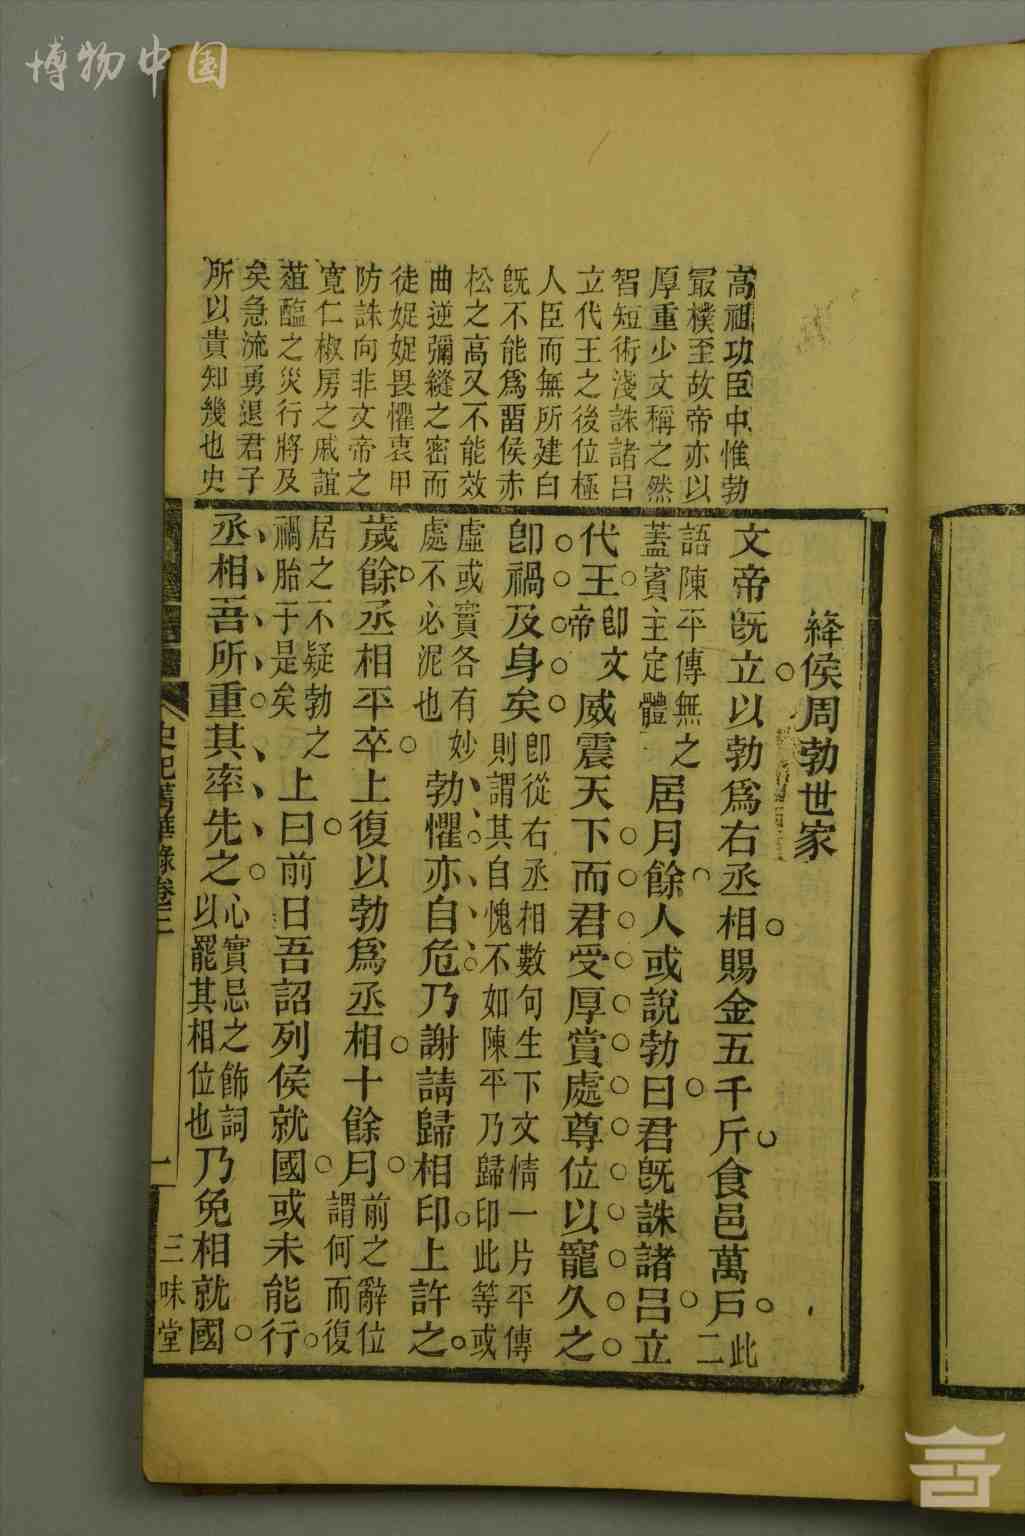 博物中国
高祖功臣中惟勃
最樸至故帝亦以
厚重少文稱之然
智短術淺誅諸吕
立代王之後位極
人臣而無所建白
旣不能爲畱侯赤
松之高又不能效
曲逆彌縫之密而
徒娖娖畏懼衷甲
防誅向非文帝之
寛仁椒房之戚誼
菹醢之災行將及
矣急流勇退君子
所以貴知幾也史
絳侯周勃世家
文帝旣立以勃爲右丞相賜金五千斤食邑萬戶此二
語陳平傳無之蓋賓主定體居月餘人或說勃曰君旣誅諸吕立
代王卽文帝威震天下而君受厚賞處尊位以寵久之
卽禍及身矣卽從右丞相數句生下文情一片平傳則謂其自愧不如陳平乃歸印此等或
虛或實各有妙處不必泥也勃懼亦自危乃謝請歸相印上許之
歲餘丞相平卒上復以勃爲丞相十餘月前之辭位謂何而復
居之不疑勃之禍胎于是矣上曰前日吾詔列侯就國或未能行
丞相吾所重其率先之心實忌之飾詞以罷其相位也乃免相就國
史記菁華錄卷三
一
三味堂